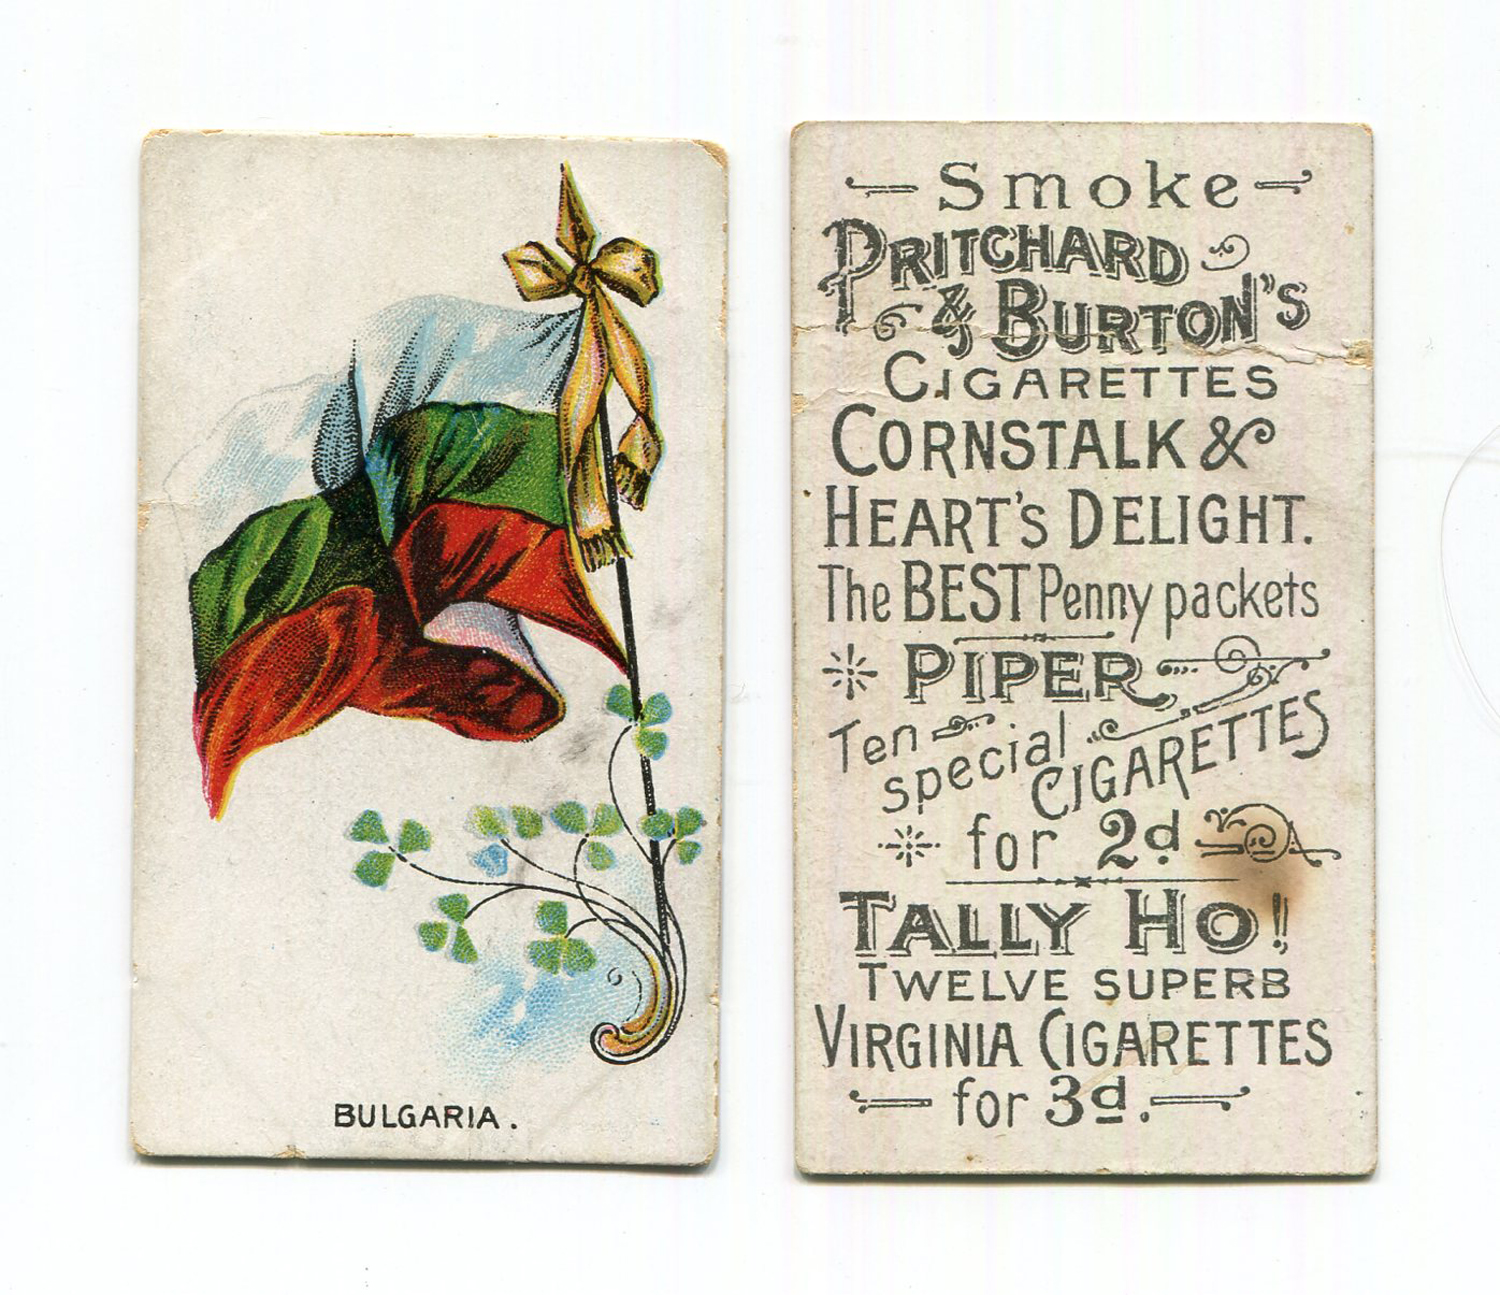 BULGARIA.
Smoke
PRITCHARD
& BURTON"S
CIGARETTES
CORNSTALK &
HEART'S DELIGHT.
The BEST Penny packets
PIPER
Ten special CIGARETTES
for 2d
TALLY HO!
TWELVE SUPERB
VIRGINIA CIGARETTES
for 3d.